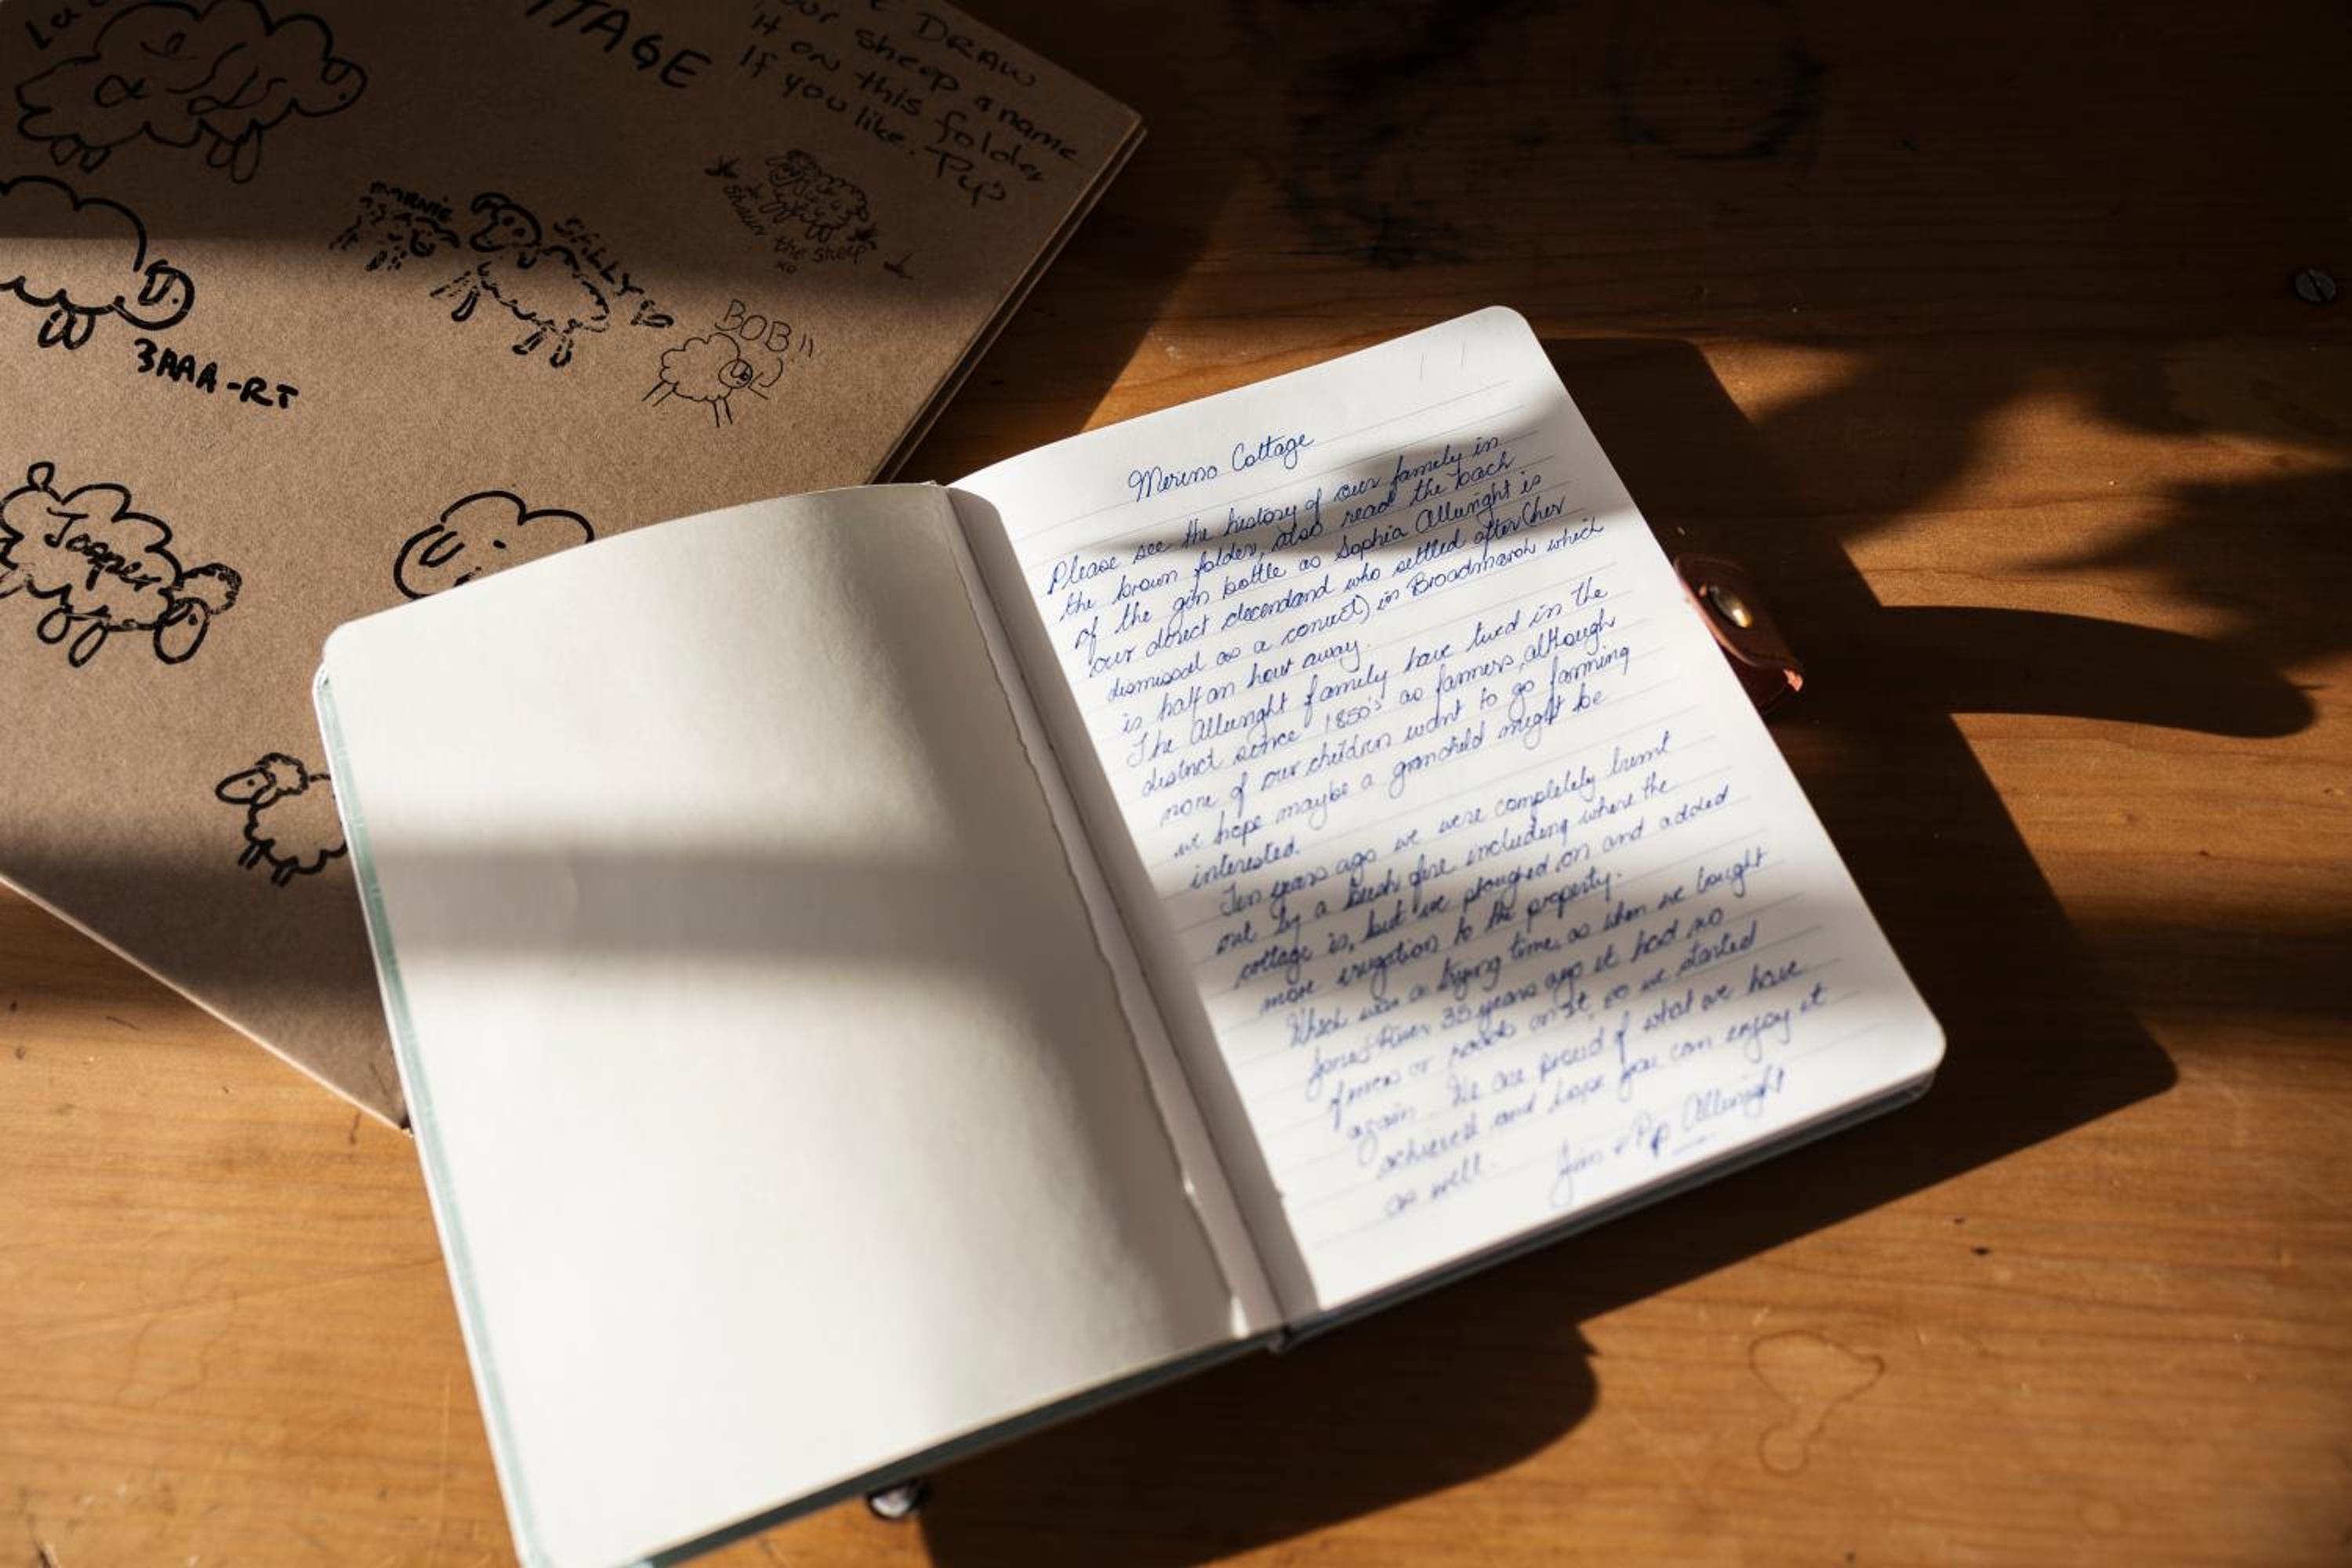 TTAGE
DRAW
your sheep a name
it on this folder
If you like. Pip
MARNIE
SALLY
shaun the sheep
xo
BOB!!
BAAA-RT
Jasper
Merino Cottage
Please see the history of our family in
the brown folder, also read the back
of the gin bottle as Sophia Allwright is
our direct decendand who settled after (her
dismissal as a convict) in Broadmarsh which
is half an hour away.
The Allwright family have lived in the
district since 1850's as farmers, although
none of our children want to go farming
we hope maybe a grandchild might be
interested.
Ten years ago we were completely burnt
out by a bush fire including where the
cottage is, but we ploughed on and added
more irrigation to the property.
Which was a trying time, as when we bought
Jones River 35 years ago it had no
fences or roads on it, so we started
again. We are proud of what we have
achieved and hope you can enjoy it
as well.
Jim + Pip Allwright